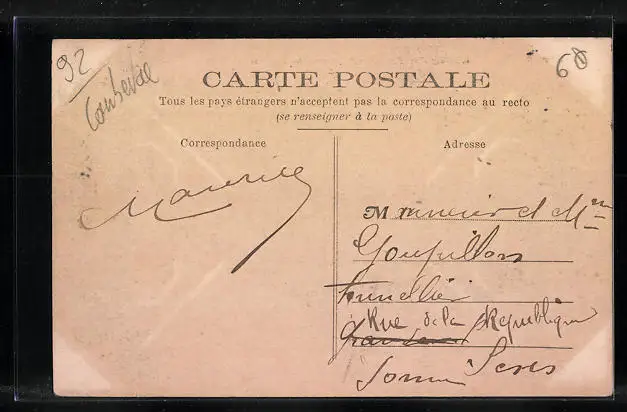 92
60
CARTE POSTALE
Tous les pays étrangers n'acceptent pas la correspondance au recto
(se renseigner à la poste)
Correspondance
Adresse
Maurice
Monsieur et Mme
Goupillon
Rue de la République